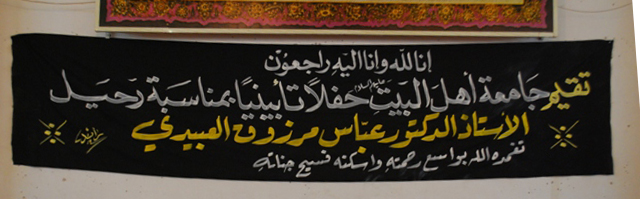 إنا لله وإنا إليه راجعون
تقيم جامعة أهل البيت عليهم السلام حفلاً تأبينياً بمناسبة رحيل
الأستاذ الدكتور عباس مرزوق العبيدي
تغمده الله بواسع رحمته واسكنه فسيح جناته